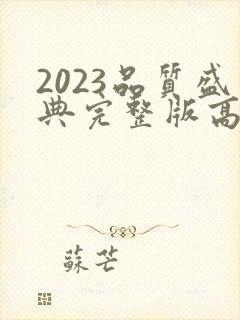 2023品質盛
典完整版高
蘇芒